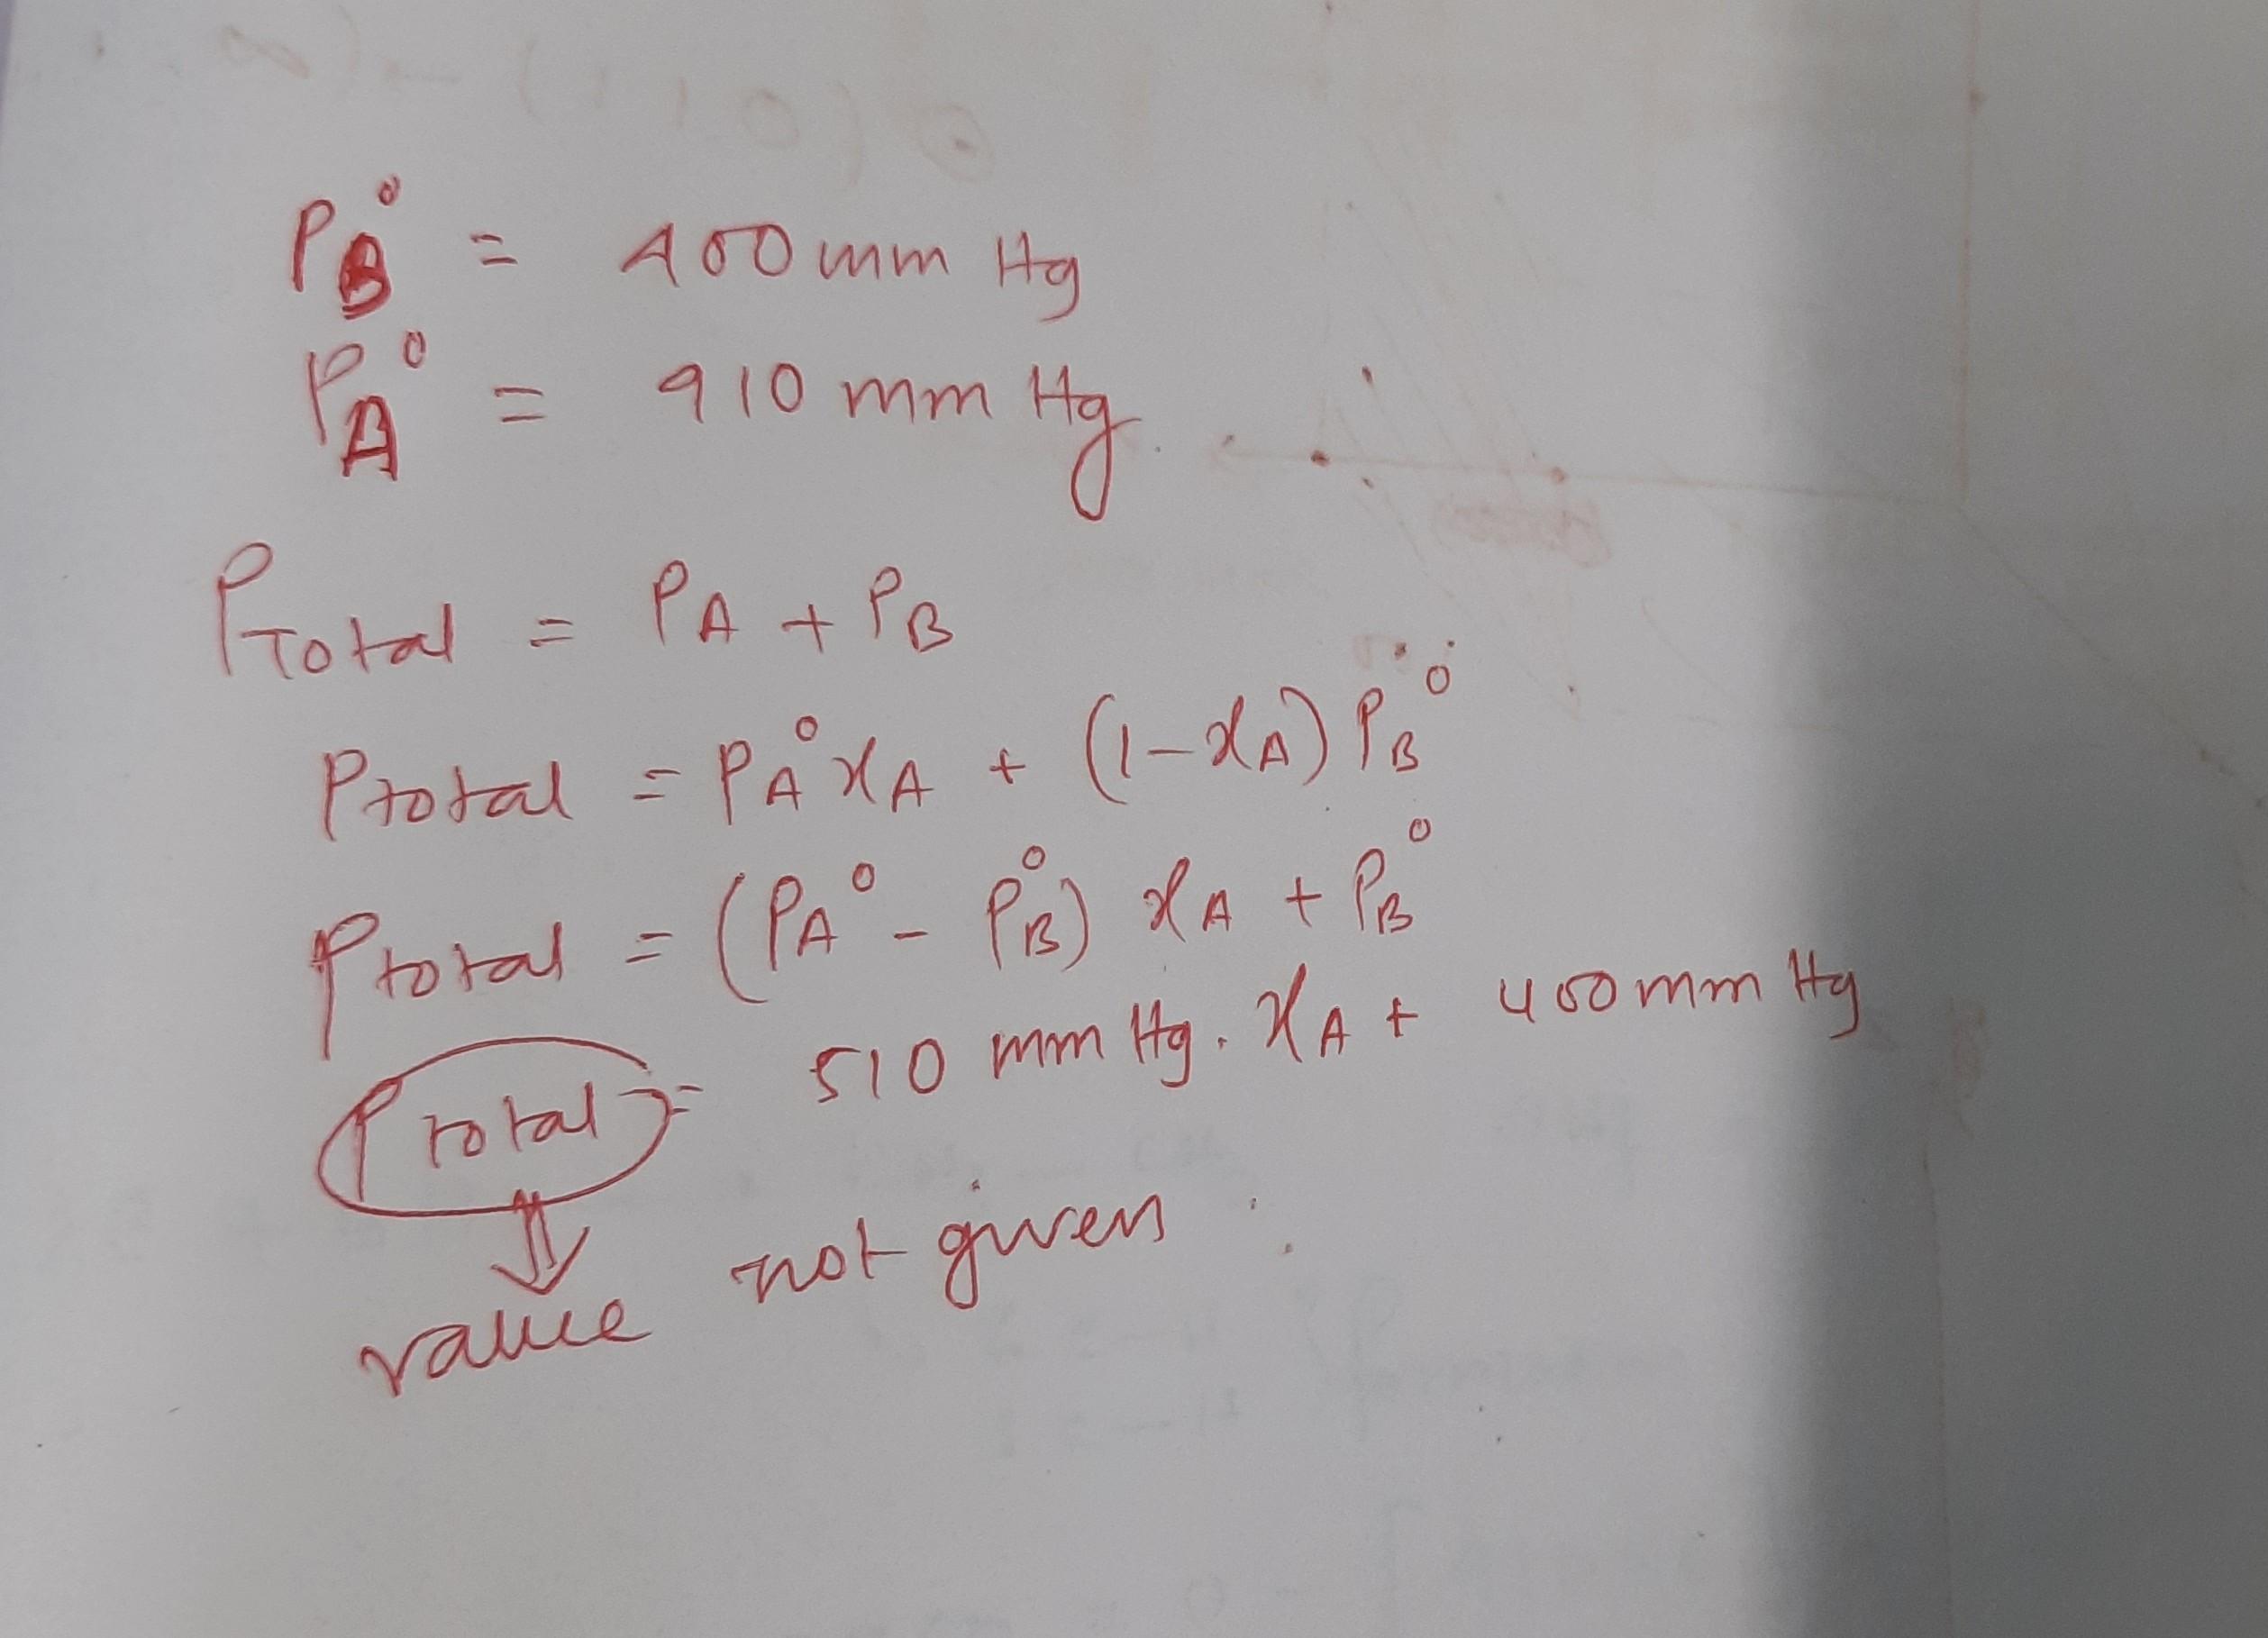 P_B° = 400 mm Hg
P_A° = 910 mm Hg.
P_Total = P_A + P_B
P_total = P_A° x_A + (1-x_A) P_B°
P_total = (P_A° - P_B°) x_A + P_B°
P_total = 510 mm Hg. x_A + 400 mm Hg
⇓
value not given.